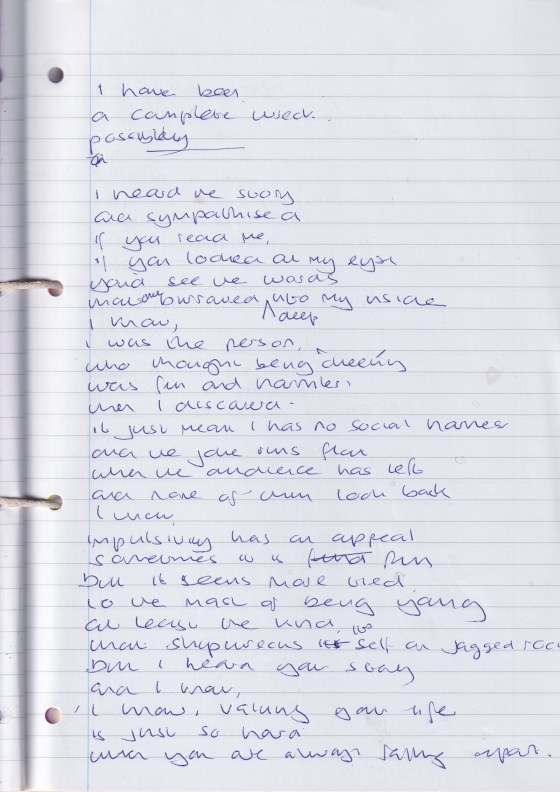 I have been
a complete wreck.
possibly
I heard the story
and sympathised
if you read me,
if you looked at my eyes
you'd see the words
that burrowed deep into my inside
I know,
I was the person,
who thought being cheeky
was fun and harmless
when I discovered
it just mean I has no social
and the joke runs flat
when the audience has left
and none of them look back
I know
impulsivity has an appeal
sometimes it is fun
but it seems more tied
to the mask of being young
at least the kind,
that shipwrecks itself on jagged roc
but I heard your story
and I know,
I know, valuing your life
is just so hard
when you are always falling apart.